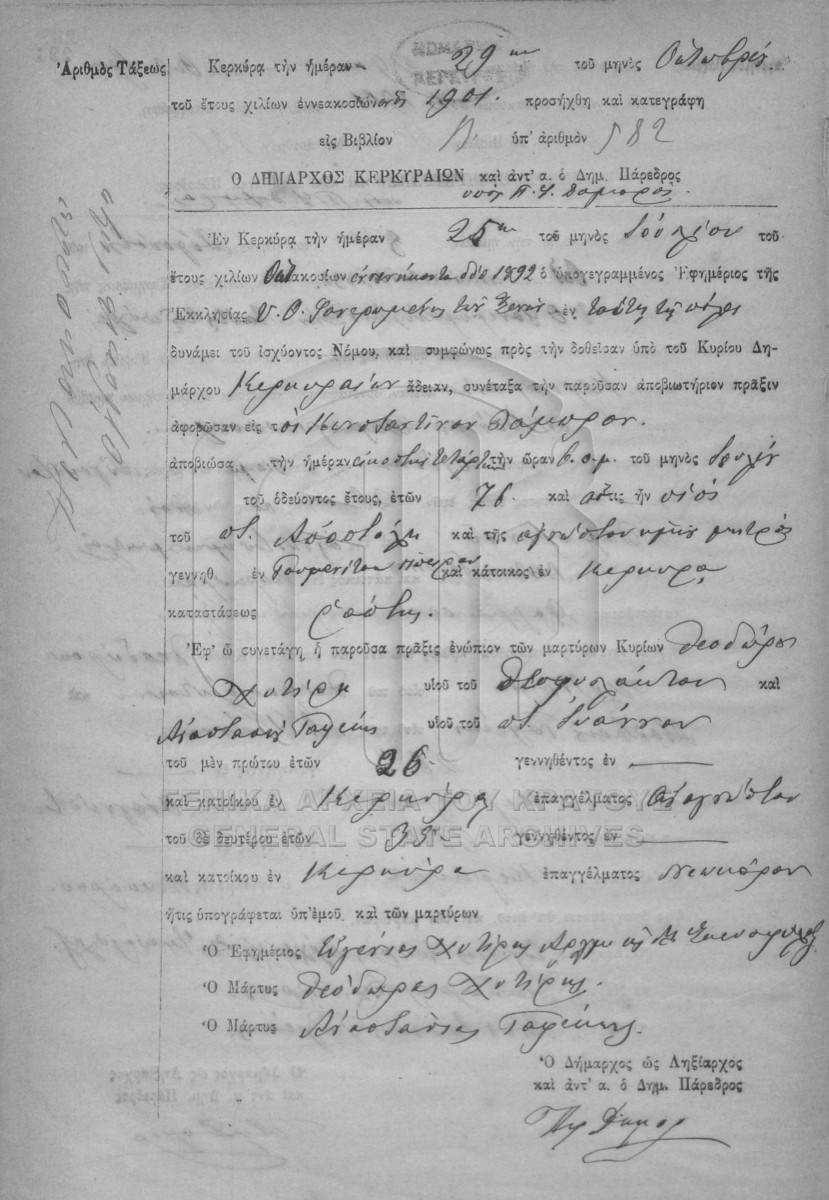 Ἀριθμὸς Τάξεως
Κερκύρᾳ τὴν ἡμέραν 29ην τοῦ μηνὸς Ὀκτωβρίου
τοῦ ἔτους χιλίων ἐννεακοσίων ἑνός 1901. προσήχθη καὶ κατεγράφη
εἰς Βιβλίον ὑπ' ἀριθμὸν 582
Ο ΔΗΜΑΡΧΟΣ ΚΕΡΚΥΡΑΙΩΝ καὶ ἀντ' α. ὁ Δημ. Πάρεδρος
Ἐν Κερκύρᾳ τὴν ἡμέραν 25ην τοῦ μηνὸς Ἰουλίου τοῦ
ἔτους χιλίων Ὀκτακοσίων ἐννενήκοντα δύο 1892 ὁ ὑπογεγραμμένος Ἐφημέριος τῆς
Ἐκκλησίας Υ. Θ. Φανερωμένης τῶν Ξένων ἐν ταύτῃ τῇ πόλει
δυνάμει τοῦ ἰσχύοντος Νόμου, καὶ συμφώνως πρὸς τὴν δοθεῖσαν ὑπὸ τοῦ Κυρίου Δη-
μάρχου Κερκυραίων ἄδειαν, συνέταξα τὴν παροῦσαν ἀποβιωτήριον πρᾶξιν
ἀφορῶσαν εἰς τὸν Κωνσταντῖνον
ἀποβιώσα τὴν ἡμέραν εἰκοστὴν τετάρτην τὴν ὥραν 6. π.μ. τοῦ μηνὸς Ἰουλίου
τοῦ ὁδεύοντος ἔτους, ἐτῶν 76 καὶ ὅστις ἦν υἱὸς
τοῦ ποτ. Ἀποστόλη καὶ τῆς ἀγνώστου ἡμῖν μητρὸς
γεννηθ. ἐν Γουμενίτσα Ἠπείρου καὶ κάτοικος ἐν Κερκύρᾳ
καταστάσεως ῥάπτης.
Ἐφ' ᾧ συνετάγη ἡ παροῦσα πρᾶξις ἐνώπιον τῶν μαρτύρων Κυρίων Θεοδώρου
Χυτήρη υἱοῦ τοῦ Θεοφυλάκτου καὶ
Ἀναστασίου υἱοῦ τοῦ ποτ. Ἰωάννου
τοῦ μὲν πρώτου ἐτῶν 26 γεννηθέντος ἐν
καὶ κατοίκου ἐν Κερκύρᾳ ἐπαγγέλματος Ἀναγνώστου
τοῦ δὲ δευτέρου ἐτῶν 33 γεννηθέντος ἐν
καὶ κατοίκου ἐν Κερκύρᾳ ἐπαγγέλματος Νεωκόρου
ἥτις ὑπογράφεται ὑπ' ἐμοῦ καὶ τῶν μαρτύρων
Ὁ Ἐφημέριος Εὐγένιος Χυτήρης
Ὁ Μάρτυς Θεόδωρος Χυτήρης.
Ὁ Μάρτυς Ἀναστάσιος
Ὁ Δήμαρχος ὡς Ληξίαρχος
καὶ ἀντ' α. ὁ Δημ. Πάρεδρος
ΓΕΝΙΚΑ ΑΡΧΕΙΑ ΤΟΥ ΚΡΑΤΟΥΣ
GENERAL STATE ARCHIVES